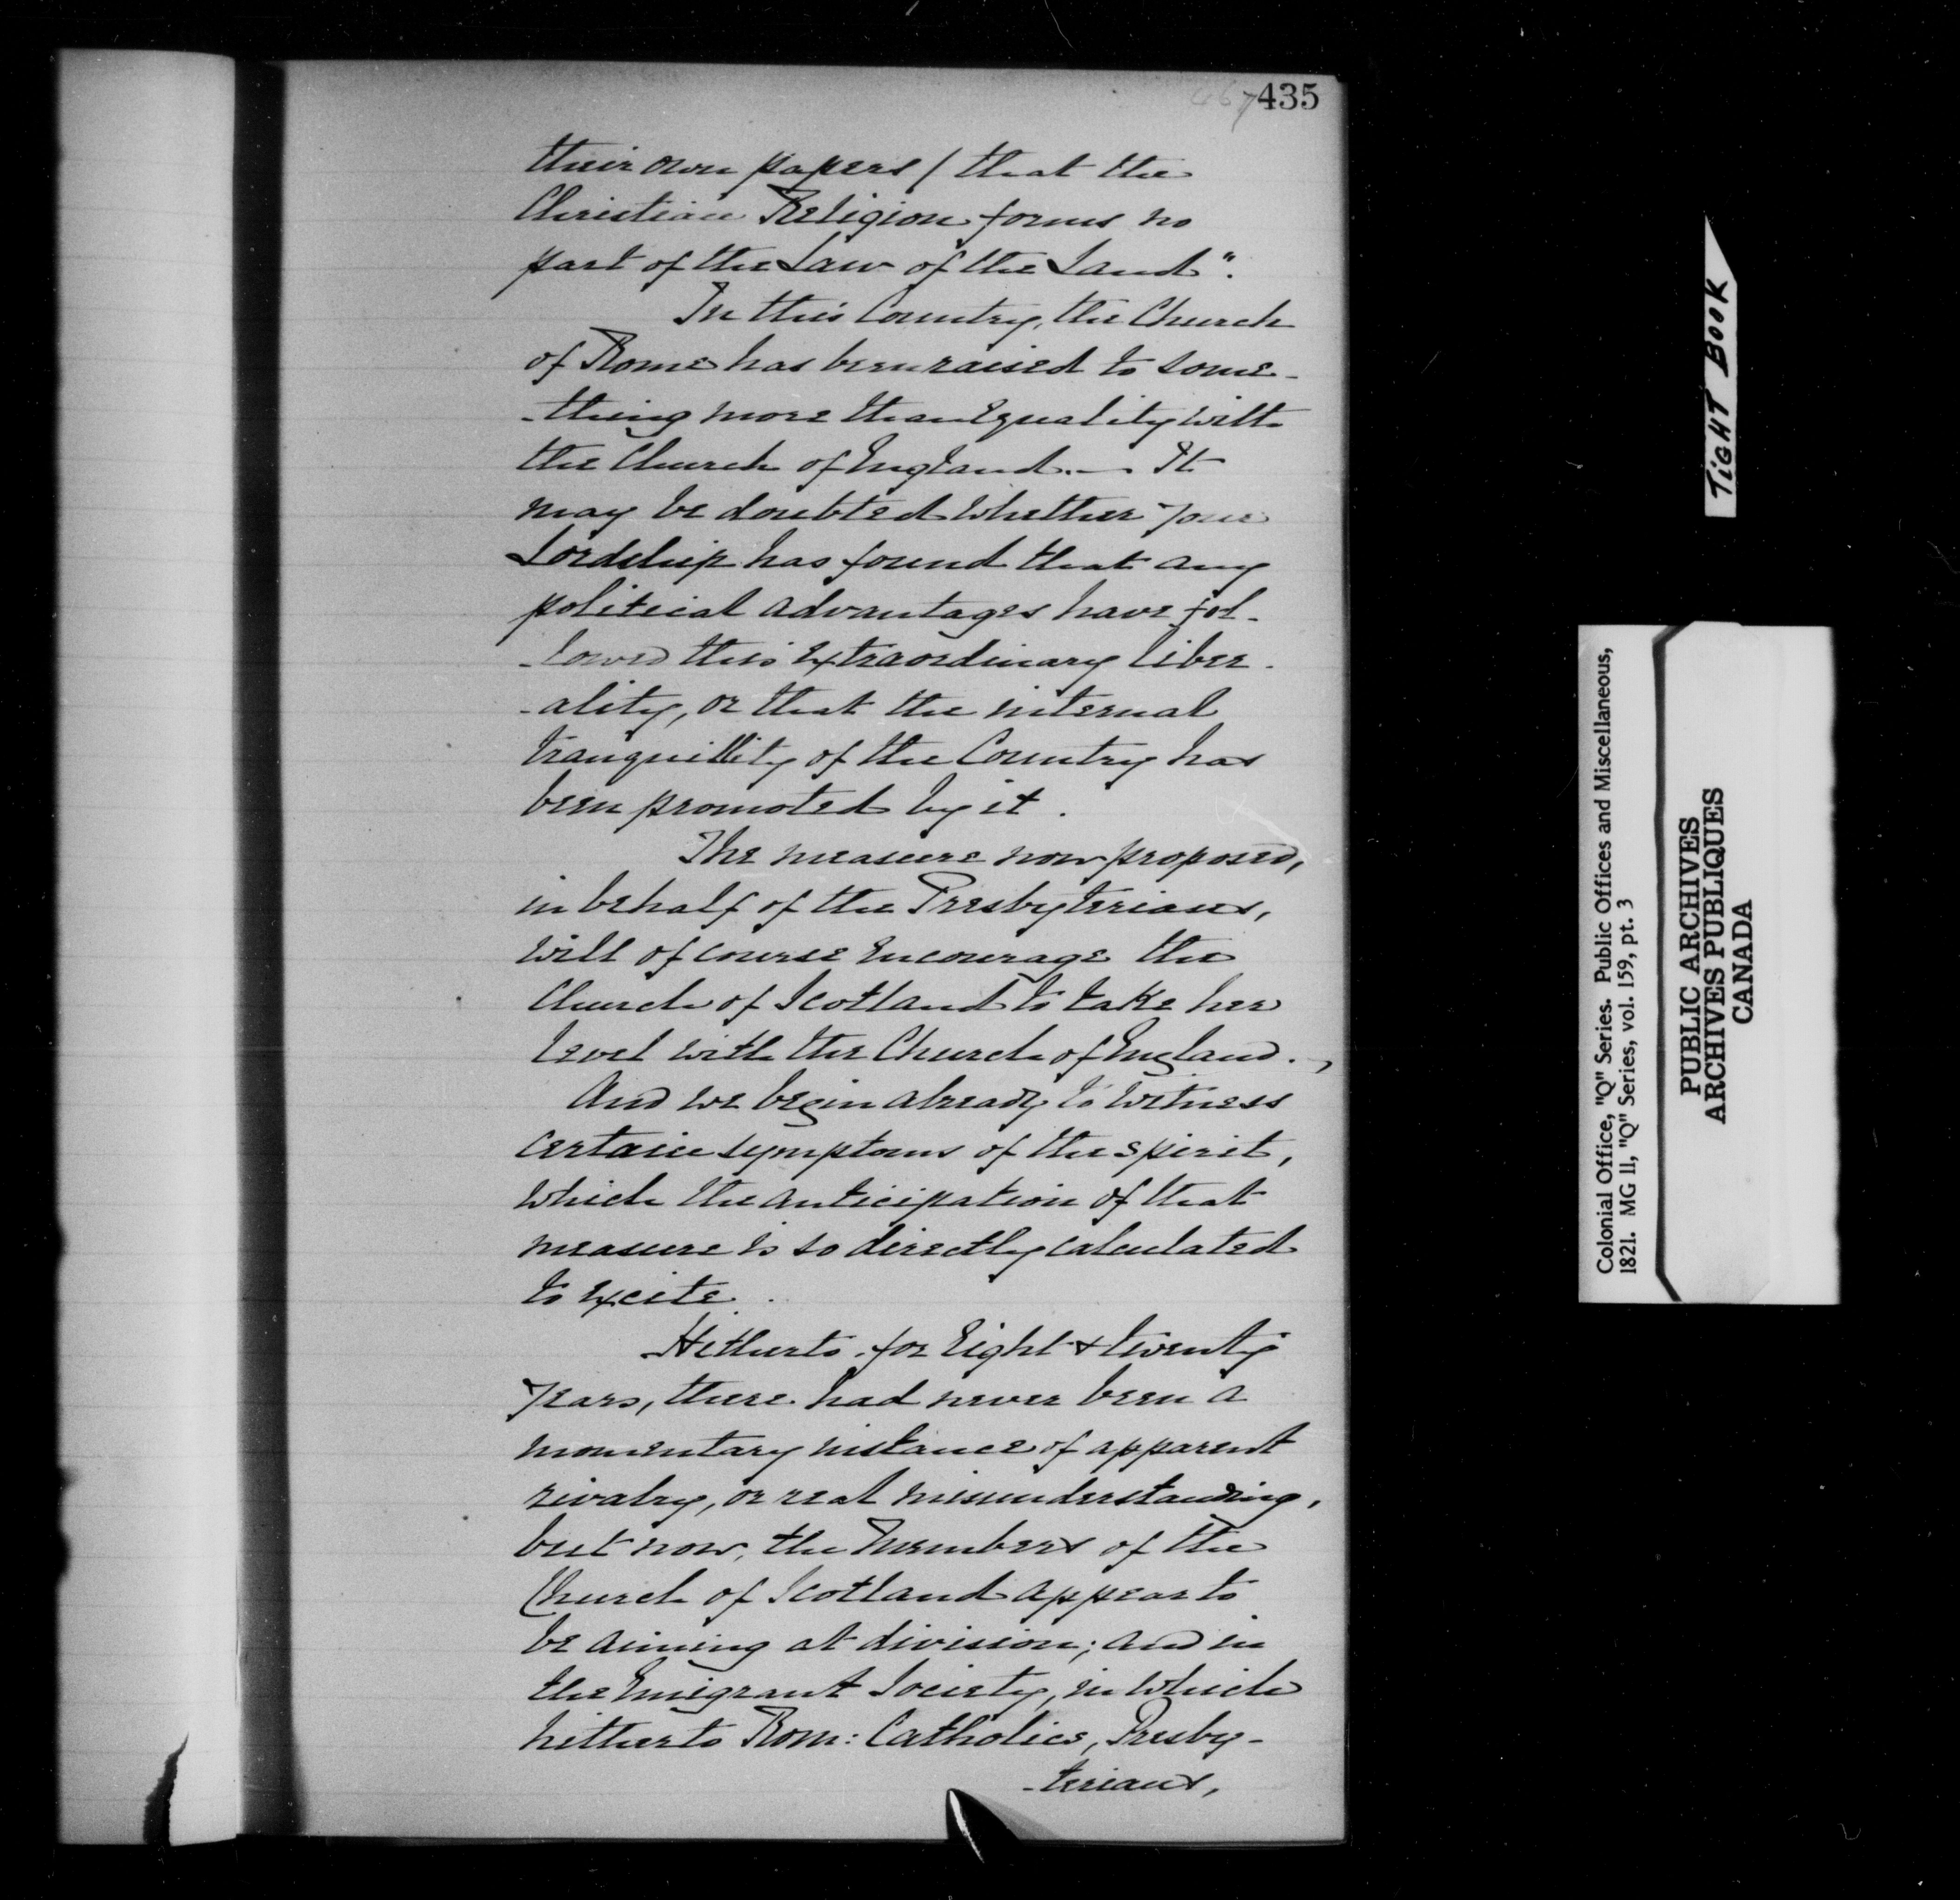 435
their own papers / that the
Christian Religion forms no
part of the Law of the Land".
In this Country, the Church
of Rome has been raised to some-
-thing more than Equality with
the Church of England. — It
may be doubted whether your
Lordship has found that any
political advantages have fol-
-lowed this extraordinary liber-
-ality, or that the internal
tranquillity of the Country has
been promoted by it.
The measure now proposed,
in behalf of the Presbyterians,
will of course encourage the
Church of Scotland to take her
level with the Church of England. -,
And we begin already to witness
certain symptoms of the spirit,
which the anticipation of that
measure is so directly calculated
to excite.
Hitherto, for Eight & twenty
years, there had never been a
momentary instance of apparent
rivalry, or real misunderstanding,
but now, the Members of the
Church of Scotland appear to
be aiming at division; and in
the Emigrant Society, in which
hitherto Rom: Catholics, Presby-
-terians,
TIGHT BOOK
Colonial Office, "Q" Series. Public Offices and Miscellaneous,
1821. MG 11, "Q" Series, vol. 159, pt. 3
PUBLIC ARCHIVES
ARCHIVES PUBLIQUES
CANADA